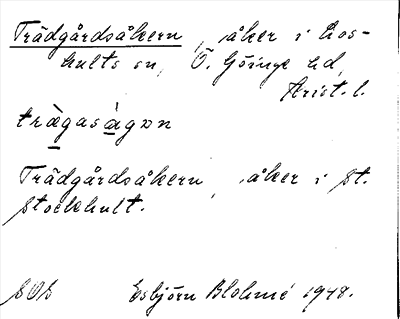 Trädgårdsåkern, åker i Los-
hults sn, Ö. Göinge hd,
Krist. l.
trägasågɒn
Trädgårdsåkern, åker i St.
Stockhult.
Esbjörn Blohmé 1948.